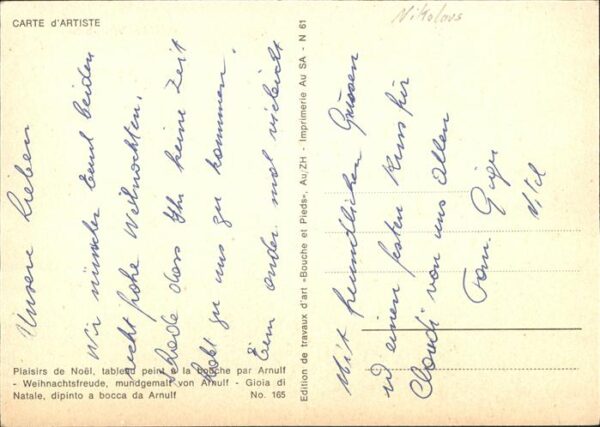 CARTE d'ARTISTE
Nikolaus
Unsere Lieben
Wir wünschen Euch beiden
recht frohe Weihnachten.
Schade dass Ihr keine Zeit
habt zu uns zu kommen.
Ein ander mal vieleicht
Mit freundlichen Grüssen
und einen festen Kuss für
Claudi von uns allen
Fam. Giger
Wil
Plaisirs de Noël, tableau peint à la bouche par Arnulf
- Weihnachtsfreude, mundgemalt von Arnulf - Gioia di
Natale, dipinto a bocca da Arnulf No. 165
Edition de travaux d'art «Bouche et Pieds», Au/ZH - Imprimerie Au SA - N 61